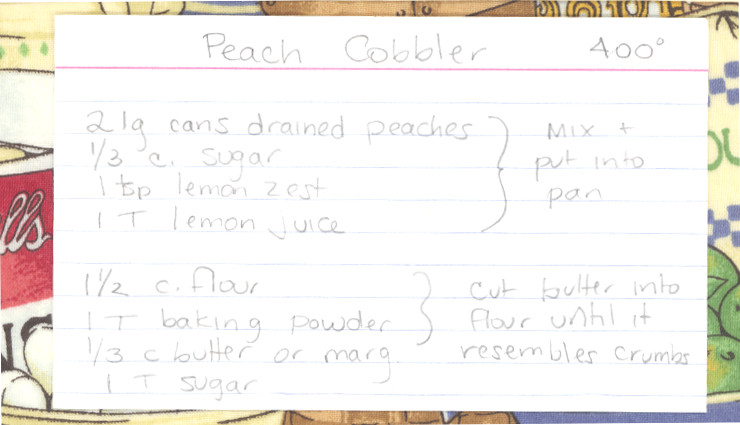 Peach Cobbler 400°
2 lg cans drained peaches
1/3 c. sugar
1 tsp lemon zest
1 T lemon juice
Mix +
put into
pan
1 1/2 c. flour
1 T baking powder
1/3 c butter or marg.
1 T sugar
cut butter into
flour until it
resembles crumbs